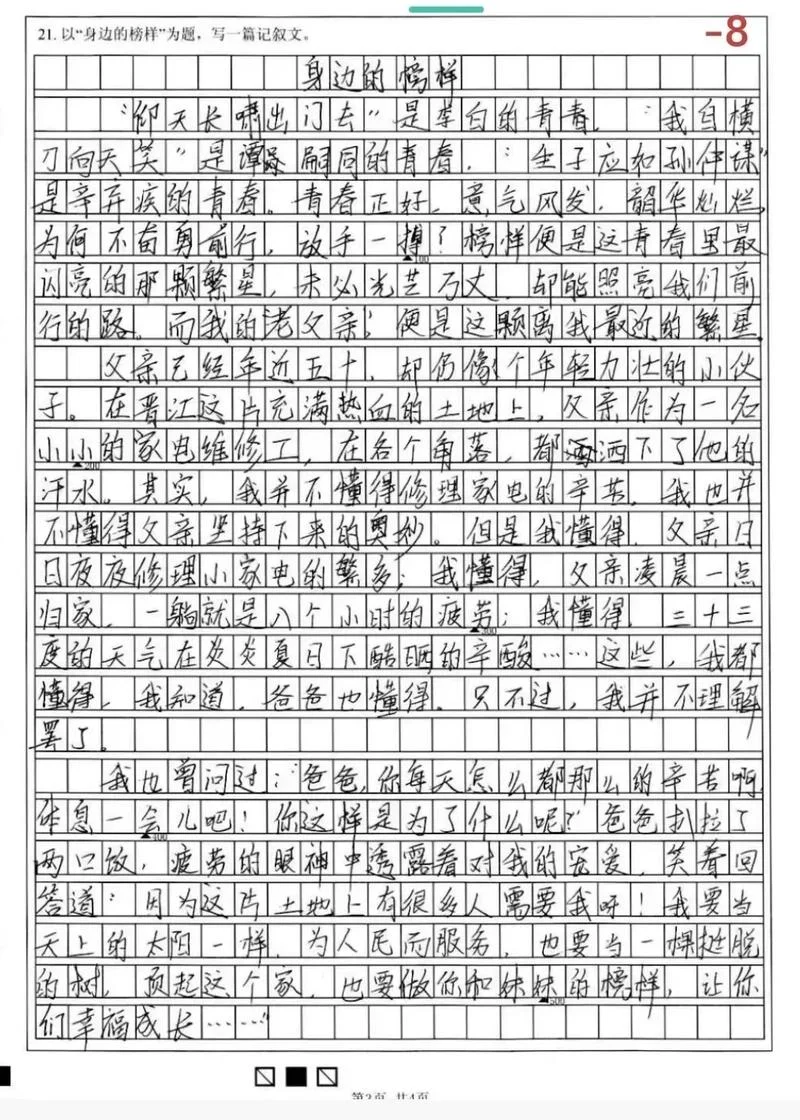 -8
21. 以“身边的榜样”为题，写一篇记叙文。
身边的榜样
“仰天长啸出门去”是李白的青春，“我自横
刀向天笑”是谭嗣同的青春，“生子应如孙仲谋”
是辛弃疾的青春。青春正好，意气风发，韶华灿烂，
为何不奋勇前行，放手一搏？榜样便是这青春里最
闪亮的那颗繁星，未必光芒万丈，却能照亮我们前
行的路。而我的“老父亲”，便是这颗离我最近的繁星。
父亲已经年近五十，却仍像个年轻力壮的小伙
子。在晋江这片充满热血的土地上，父亲作为一名
小小的家电维修工，在各个角落，都洒下了他的
汗水。其实，我并不懂得修理家电的辛苦，我也并
不懂得父亲坚持下来的奥妙。但是我懂得，父亲日
日夜夜修理小家电的繁多；我懂得，父亲凌晨一点
归家，一躺就是八个小时的疲劳；我懂得，三十三
度的天气在炎炎夏日下酷晒的辛酸……这些，我都
懂得，我知道，爸爸也懂得。只不过，我并不理解
罢了。
我也曾问过：“爸爸，你每天怎么都那么的辛苦啊，
休息一会儿吧！你这样是为了什么呢？”爸爸扒拉了
两口饭，疲劳的眼神中透露着对我的宠爱，笑着回
答道：“因为这片土地上有很多人需要我呀！我要当
天上的太阳一样，为人民而服务，也要当一棵挺脱
的树，顶起这个家，也要做你和妹妹的榜样，让你
们幸福成长……”
▲100
▲200
▲300
▲400
▲500
第3页 共4页